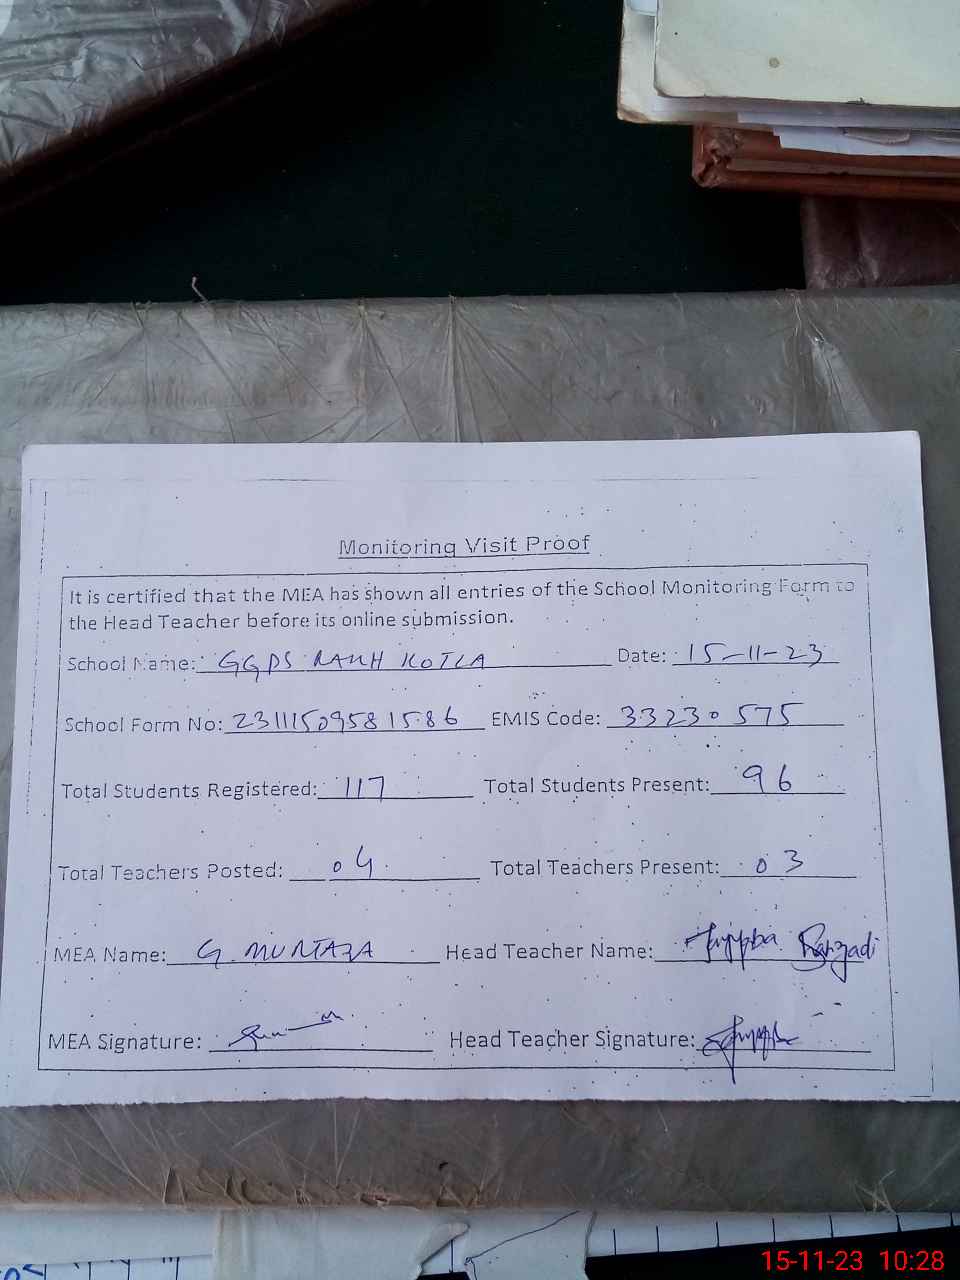 Monitoring Visit Proof
It is certified that the MEA has shown all entries of the School Monitoring Form to
the Head Teacher before its online submission.
School Name: GGPS RAKH KOTLA Date: 15-11-23
School Form No: 23111509581586 EMIS Code: 33230575
Total Students Registered: 117 Total Students Present: 96
Total Teachers Posted: 04 Total Teachers Present: 03
MEA Name: G. MURTAZA Head Teacher Name:
MEA Signature: Head Teacher Signature:
15-11-23 10:28